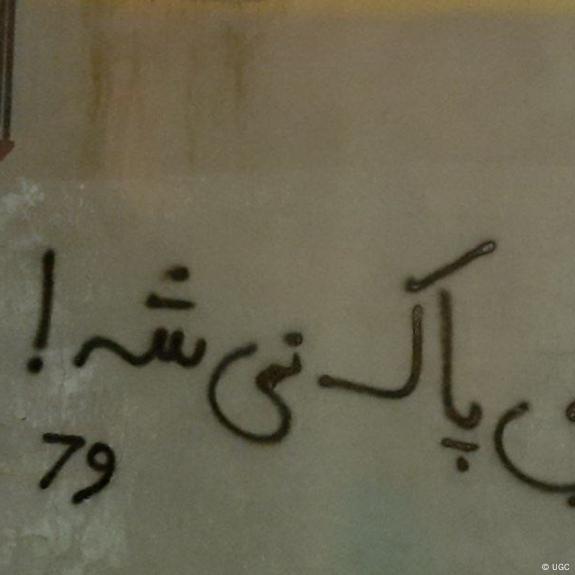 پاک نمی شه!
79
© UGC